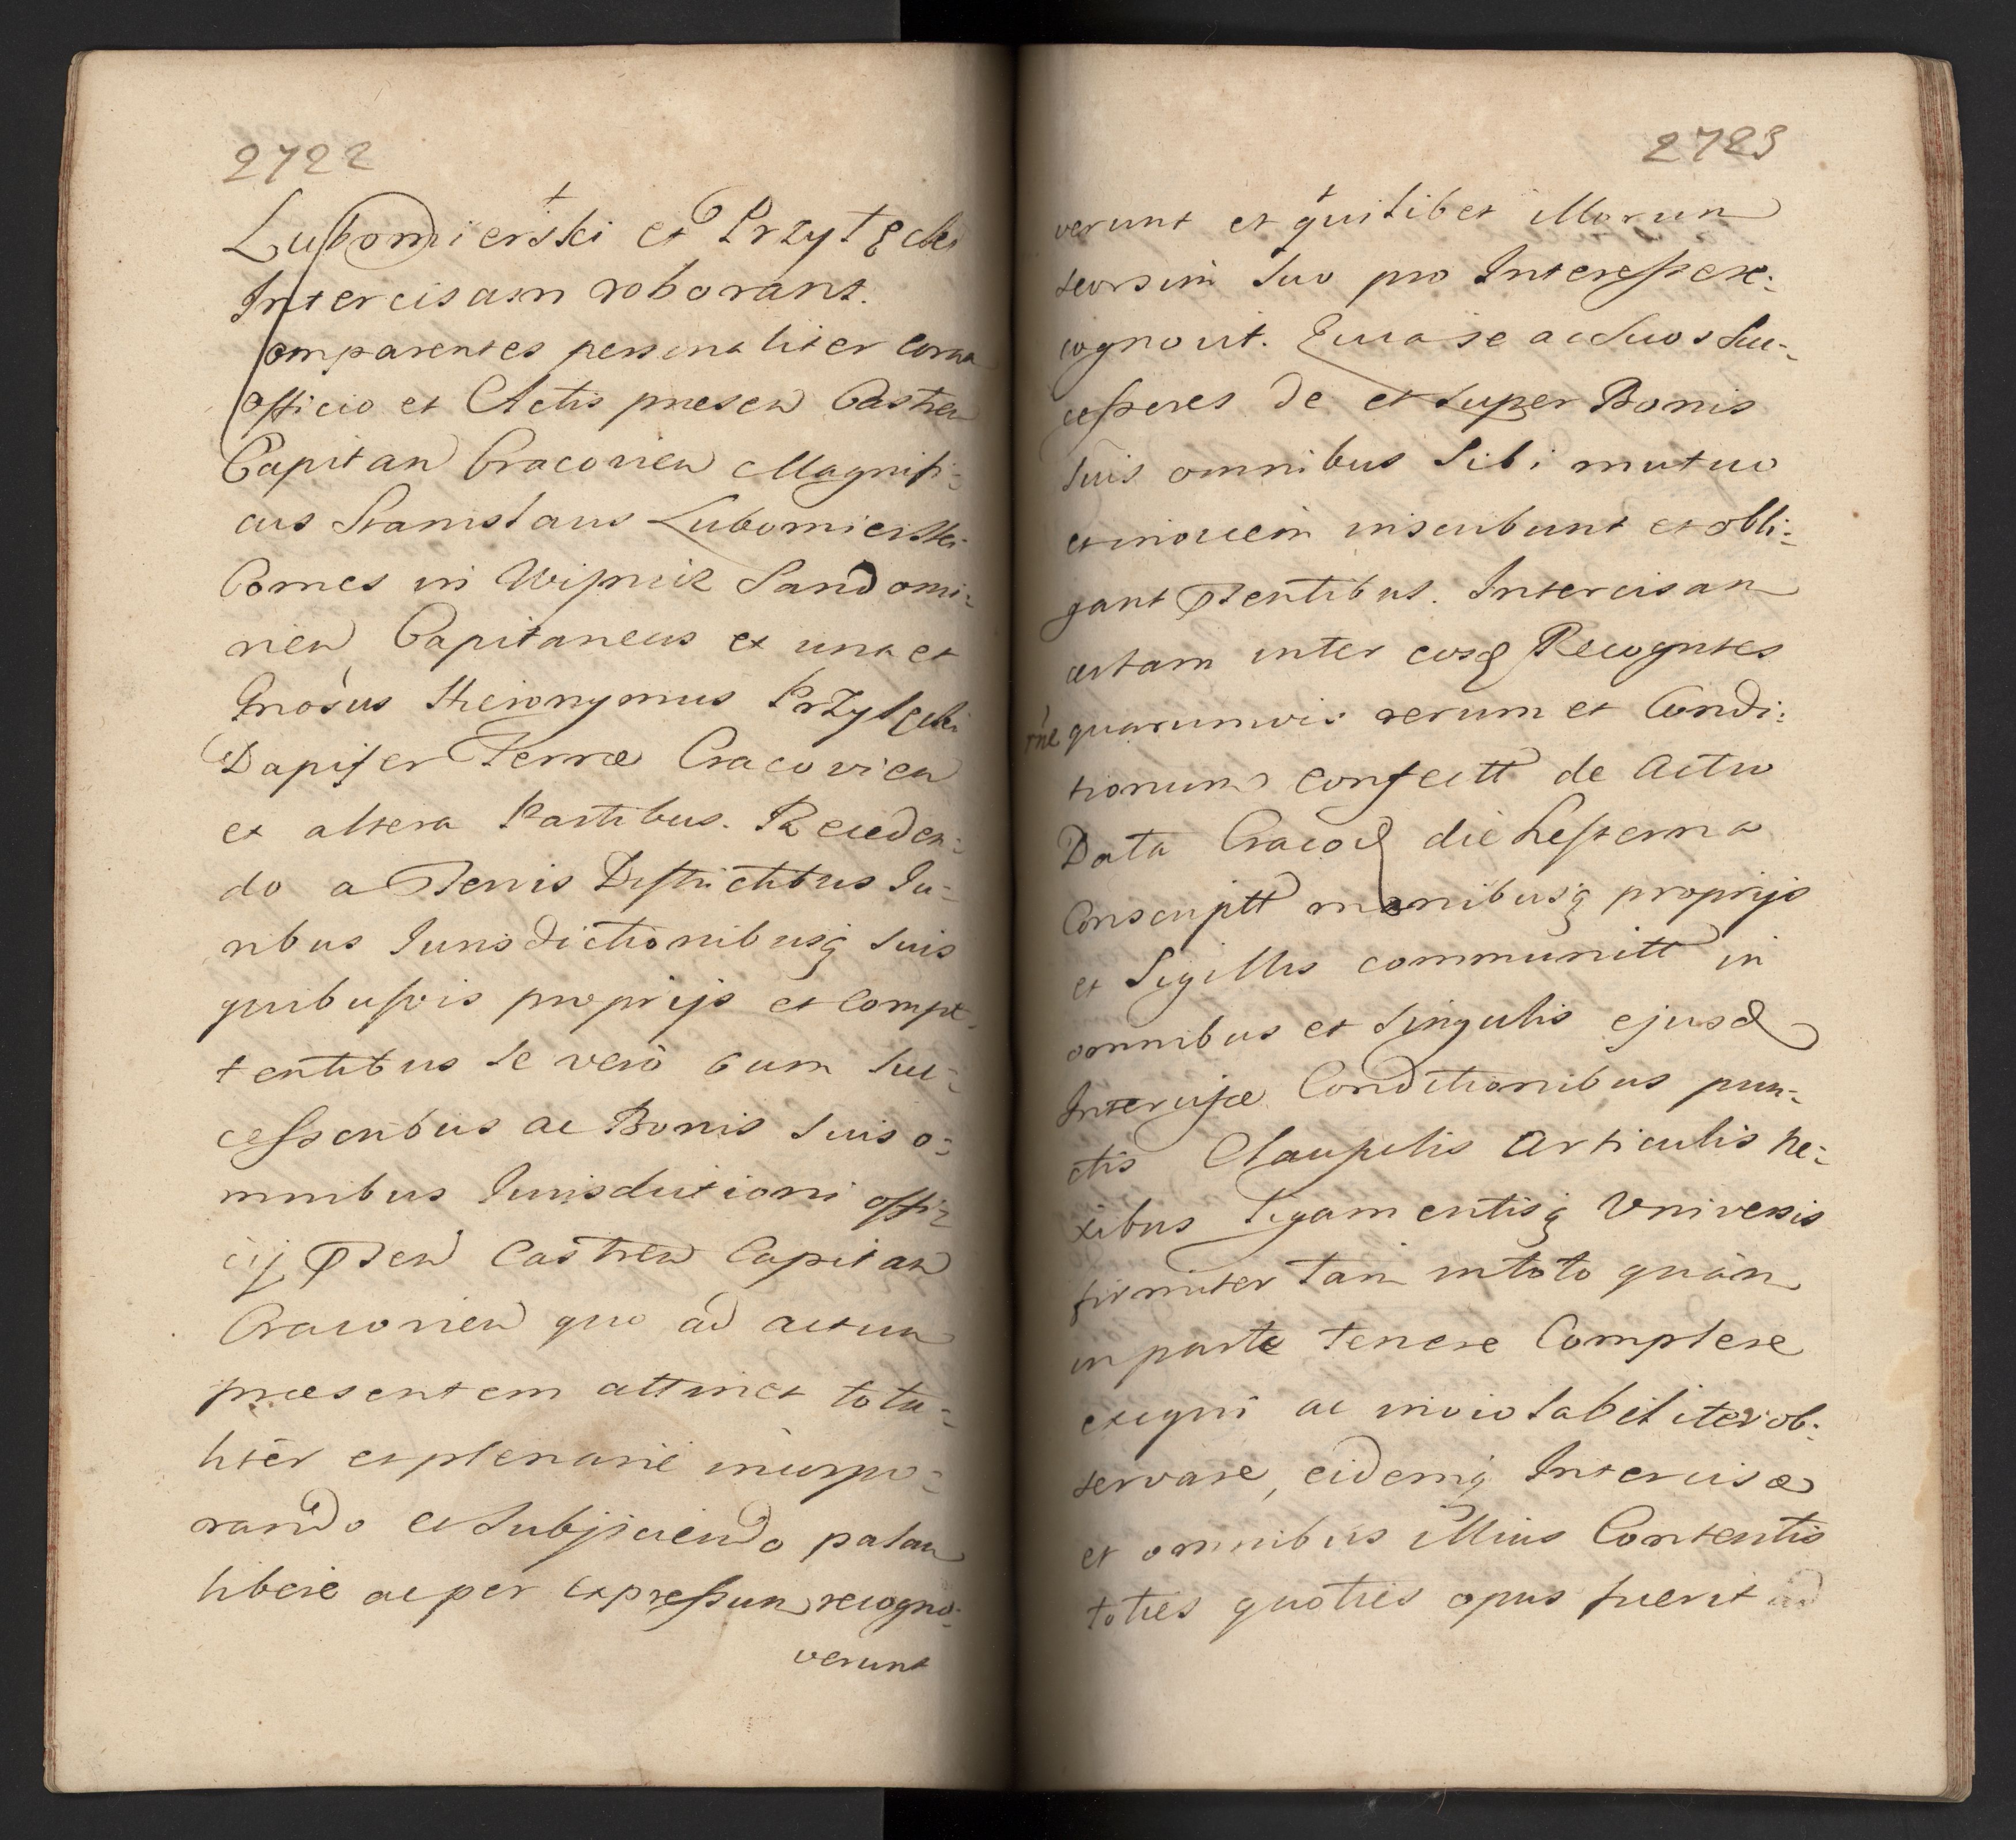 2722
Lubomierski et Przyłęcki
Intercisam roborant.
Comparentes personaliter coram
Officio et Actis presen Castren
Capitan Cracovien Magnifi=
cus Stanislaus Lubomierski
Comes in Wiśnicz Sandomi=
rien Capitaneus ex una et
Gnosus Hieronymus Przyłęcki
Dapifer Terræ Cracovien
ex altera Partibus. Receden=
do a Terris Districtibus Iu=
ribus Iurisdictionibusq suis
quibusvis proprijs et compe=
tentibus se vero cum suc=
cessoribus ac Bonis suis o=
mnibus Iurisdictioni offi=
cij psen Castren Capitan
Cracovien quo ad actum
præsentem attinet tota=
liter et plenarie incorpo=
rando et subjiciendo palam
libere ac per expressum recogno=
verunt
2723
verunt et quilibet illorum
seorsim suo pro Interesse re=
cognovit. Quia se ac suos suc=
cessores de et super Bonis
suis omnibus sibi mutuo
et invicem inscribunt et obli=
gant psentibus. Intercisam
certam inter eosd Recogntes
rne quarumvis rerum et Condi=
tionum confectt de actu
Data Cracov die hesterna
Conscriptt manibusq proprijs
et Sigillis communitt in
omnibus et singulis ejusd
Intercisæ Conditionibus pun=
ctis Clausulis articulis ne=
xibus Ligamentisq Universis
firmiter tam in toto quàm
in parte tenere Complere
exequi ac inviolabiliter ob=
servare, eidemq Intercisæ
et omnibus illius Contentis
toties quoties opus fuerit ad